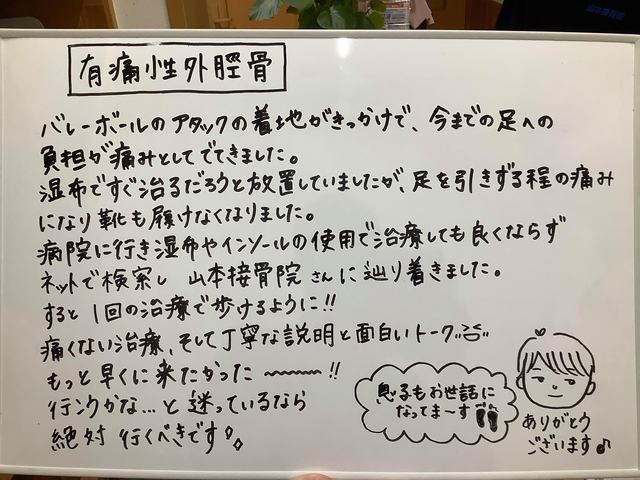 有痛性外脛骨
バレーボールのアタックの着地がきっかけで、今までの足への
負担が痛みとしてでてきました。
湿布ですぐ治るだろうと放置していましたが、足を引きずる程の痛み
になり靴も履けなくなりました。
病院に行き湿布やインソールの使用で治療しても良くならず
ネットで検索し 山本接骨院さんに辿り着きました。
すると1回の治療で歩けるように!!
痛くない治療、そして丁寧な説明と面白いトーク
もっと早くに来たかった〜〜〜!!
行こうかな...と迷っているなら
絶対 行くべきです
息子もお世話に
なってま〜す
ありがとう
ございます♪